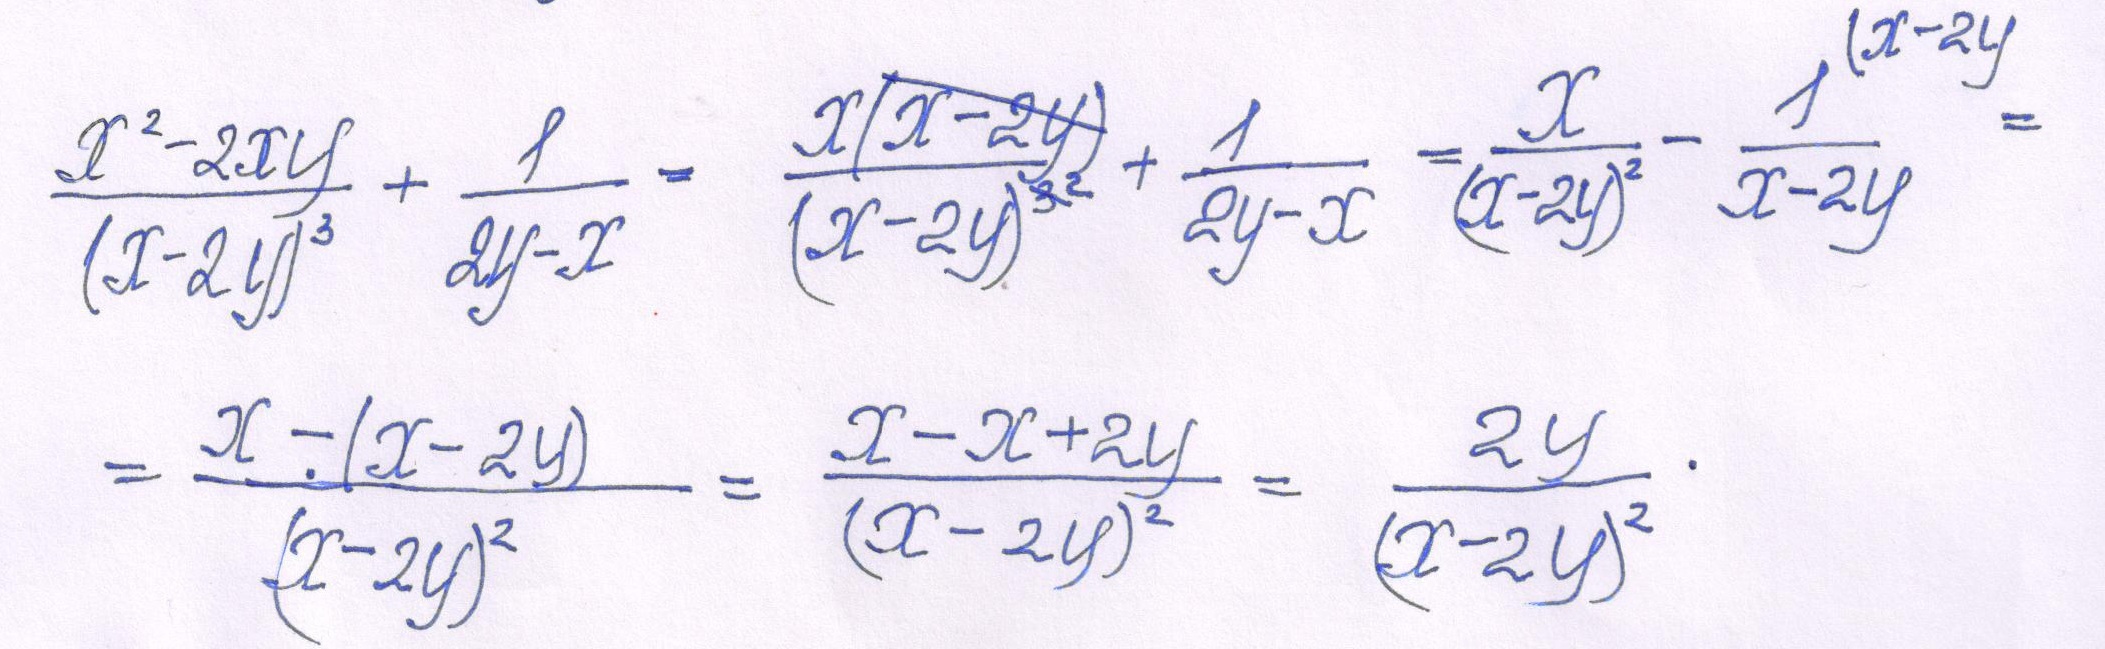 \frac{x^2-2xy}{(x-2y)^3} + \frac{1}{2y-x} = \frac{x(x-2y)}{(x-2y)^{3 2}} + \frac{1}{2y-x} = \frac{x}{(x-2y)^2} - \frac{1^{(x-2y}}{x-2y} =
= \frac{x-(x-2y)}{(x-2y)^2} = \frac{x-x+2y}{(x-2y)^2} = \frac{2y}{(x-2y)^2}.